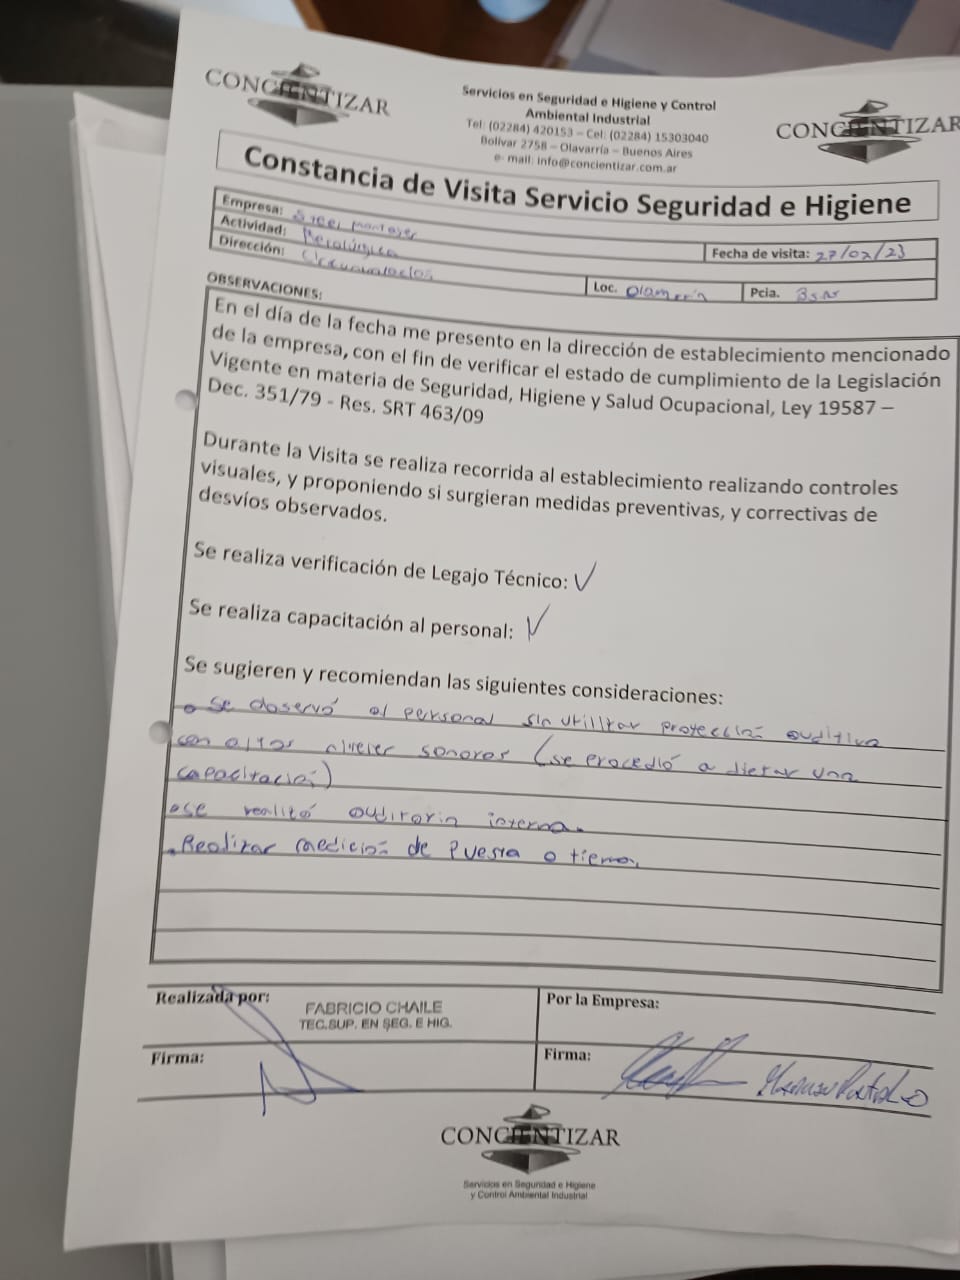 CONCIENTIZAR
Servicios en Seguridad e Higiene y Control
Ambiental Industrial
Tel: (02284) 420153 – Cel: (02284) 15303040
Bolívar 2758 – Olavarría – Buenos Aires
e- mail: info@concientizar.com.ar
CONCIENTIZAR
Constancia de Visita Servicio Seguridad e Higiene
Empresa:
Fecha de visita: 27/02/23
Actividad: Metalúrgica
Dirección:
Loc. Olavarría
Pcia. Bs As
OBSERVACIONES:
En el día de la fecha me presento en la dirección de establecimiento mencionado
de la empresa, con el fin de verificar el estado de cumplimiento de la Legislación
Vigente en materia de Seguridad, Higiene y Salud Ocupacional, Ley 19587 –
Dec. 351/79 - Res. SRT 463/09
Durante la Visita se realiza recorrida al establecimiento realizando controles
visuales, y proponiendo si surgieran medidas preventivas, y correctivas de
desvíos observados.
Se realiza verificación de Legajo Técnico: ✓
Se realiza capacitación al personal: ✓
Se sugieren y recomiendan las siguientes consideraciones:
• Se observó al personal sin utilizar protección auditiva
con altos niveles sonoros (se procedió a dictar una
capacitación)
• se realizó auditoria interna.
• Realizar medición de Puesta a tierra.
Realizada por:
FABRICIO CHAILE
TEC.SUP. EN SEG. E HIG.
Por la Empresa:
Firma:
Firma:
CONCIENTIZAR
Servicios en Seguridad e Higiene
y Control Ambiental Industrial